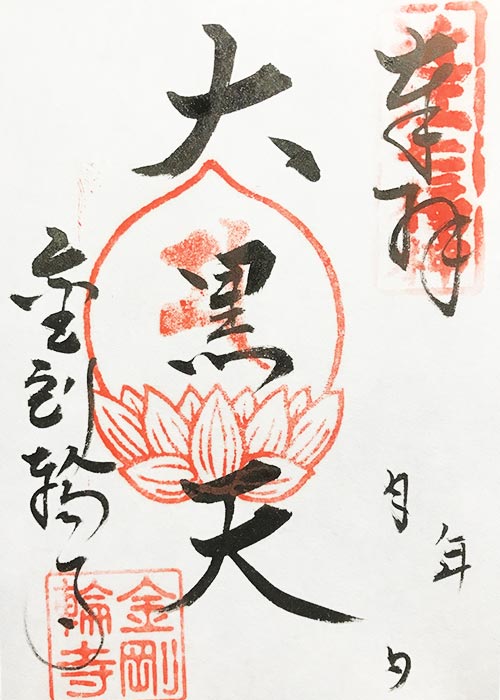 奉拝
年
月
日
大黒天
金剛輪寺
金剛
輪寺